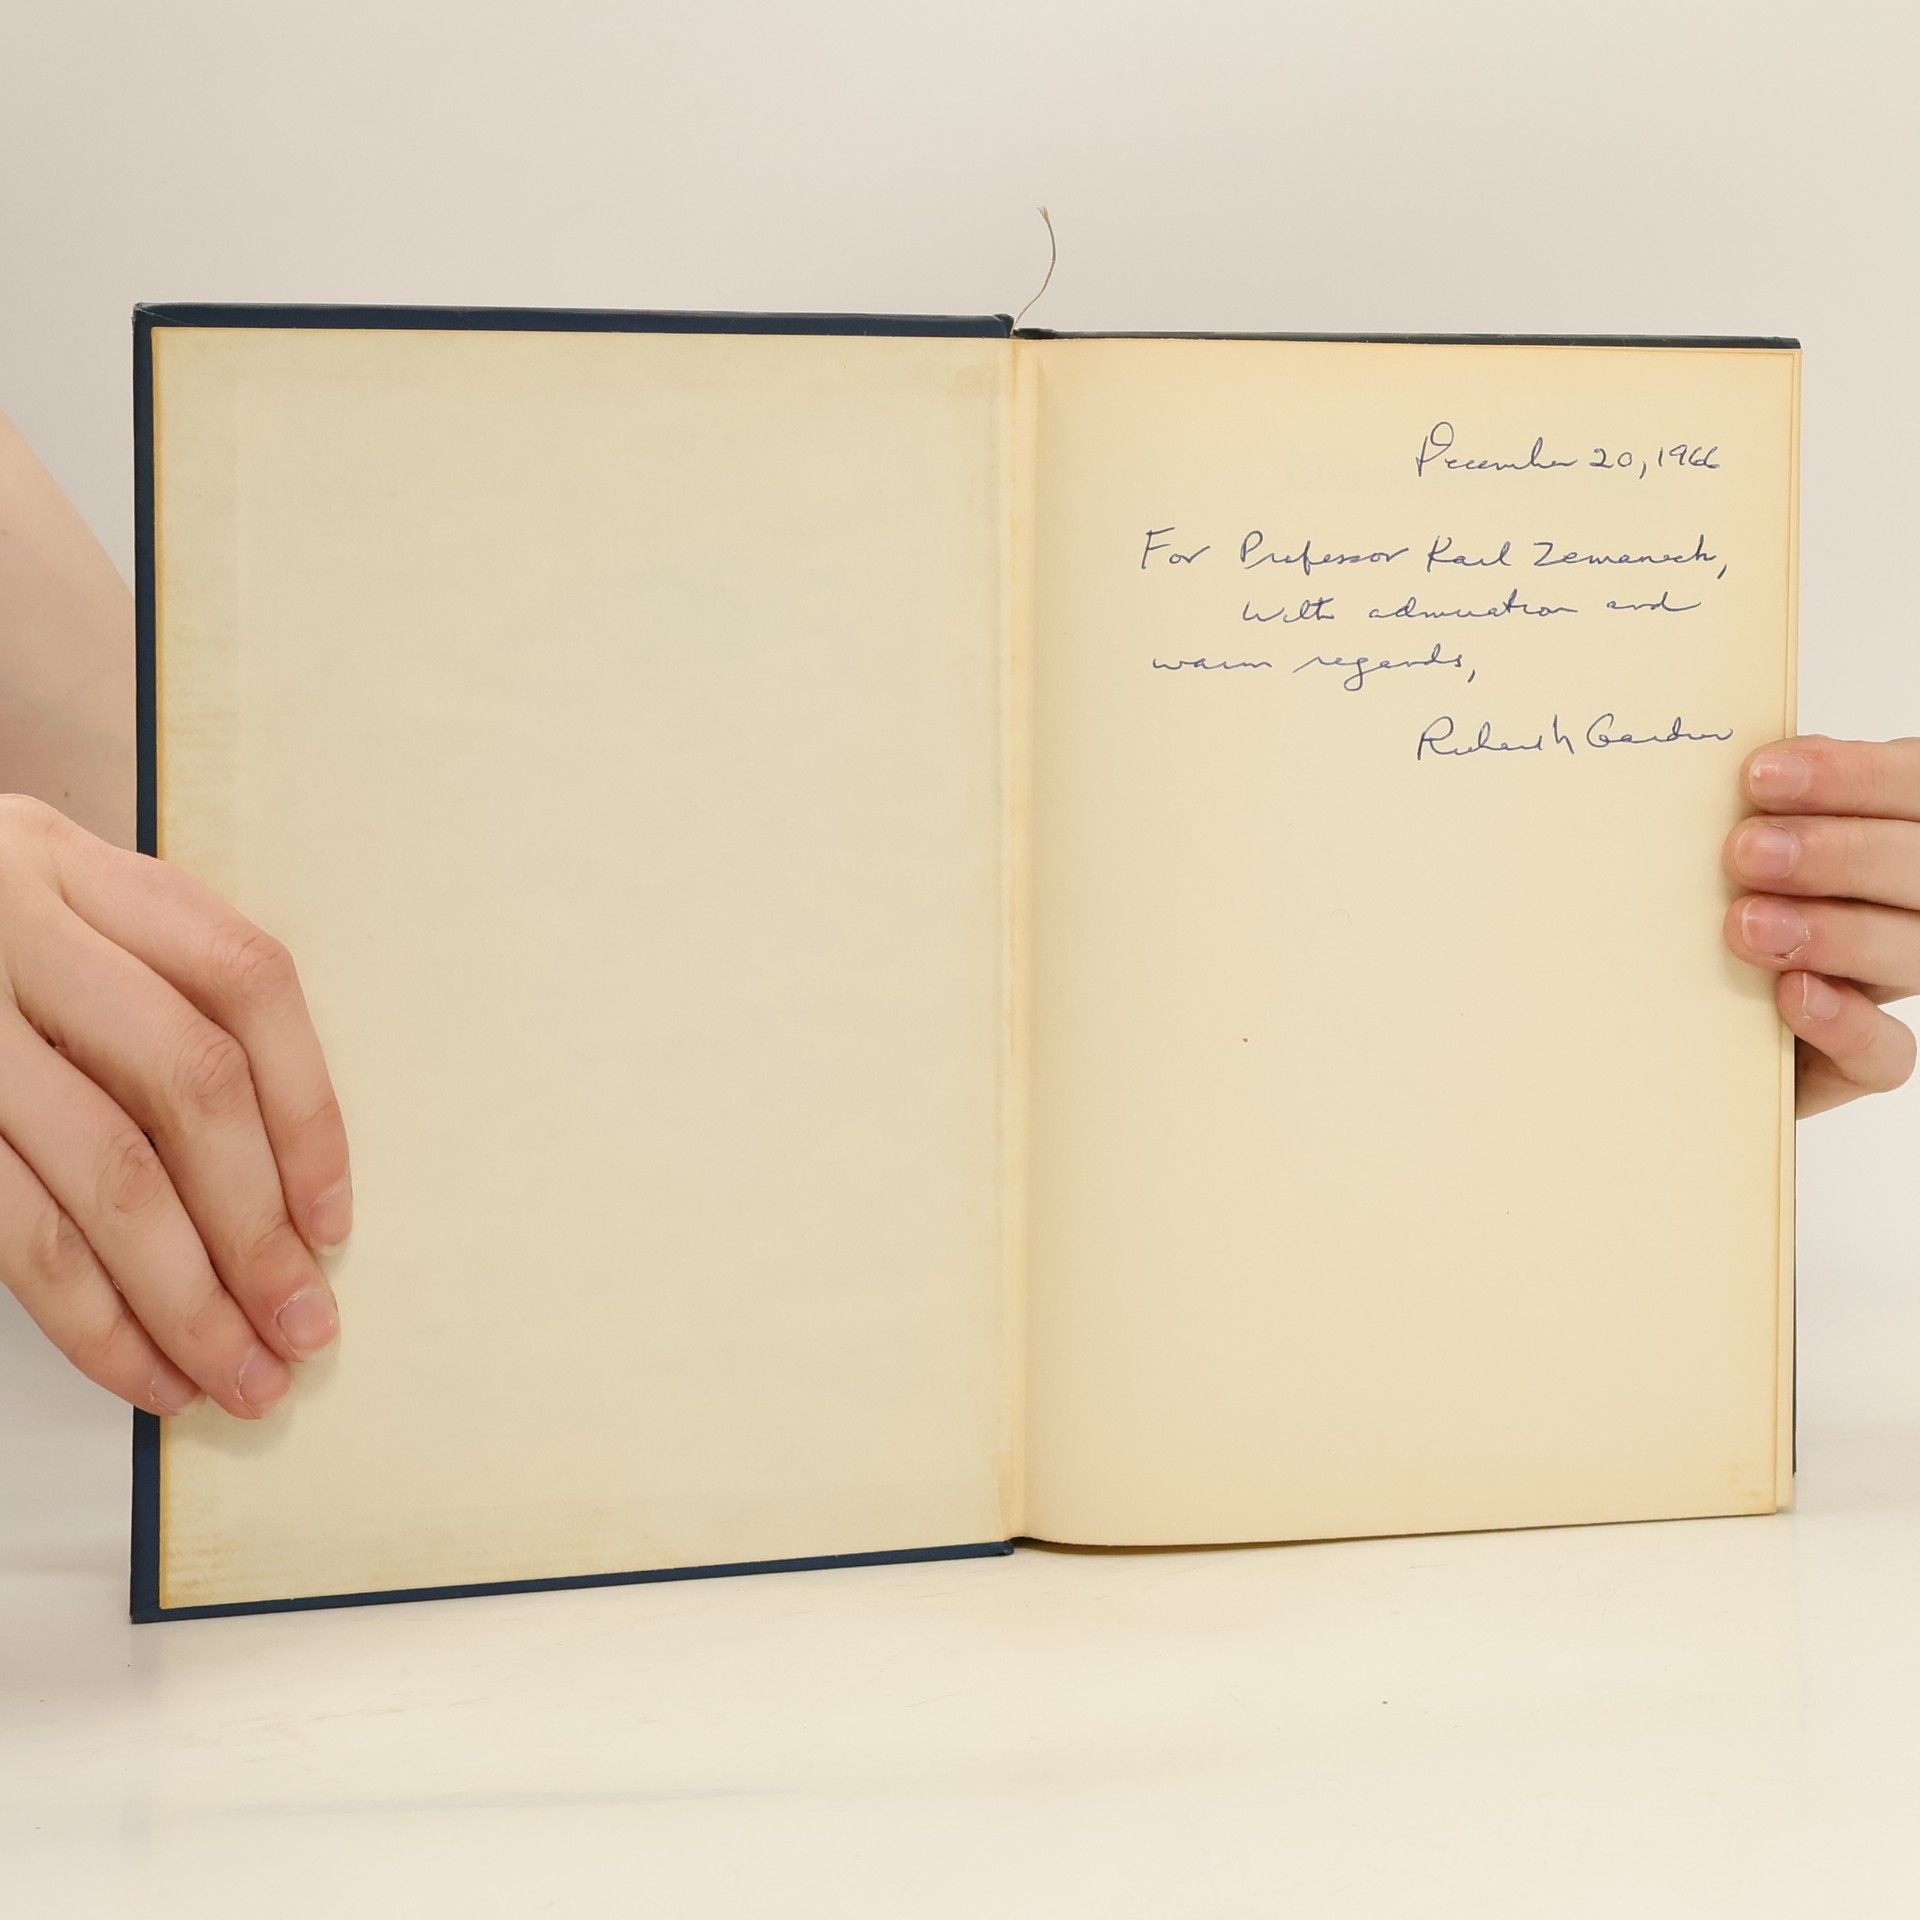 December 20, 1966
For Professor Karl Zemanek,
With admiration and
warm regards,
Richard N Gardner